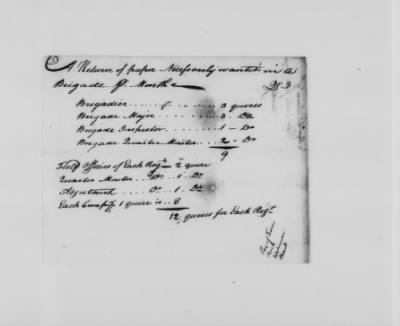 A Return of paper Necessarily wanted in a
Brigade ⅌ Month
Brigadier . . . . . . . . . 3 quires
Brigade Major . . . . . . 3 - Do
Brigade Inspector . . . . 1 - Do
Brigade Quarter Master . . . 2 - Do
9
Field Officers of Each Regt 2 quire
Quarter Master . . . Do . 1 . Do
Adjutant . . . . Do . 1 . Do
Each Compy 1 quire is . . 8
12 quires for Each Regt